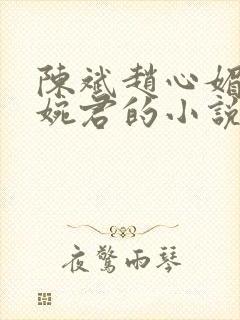 陳斌趙心媚
婉君的小說
夜驚雨琴